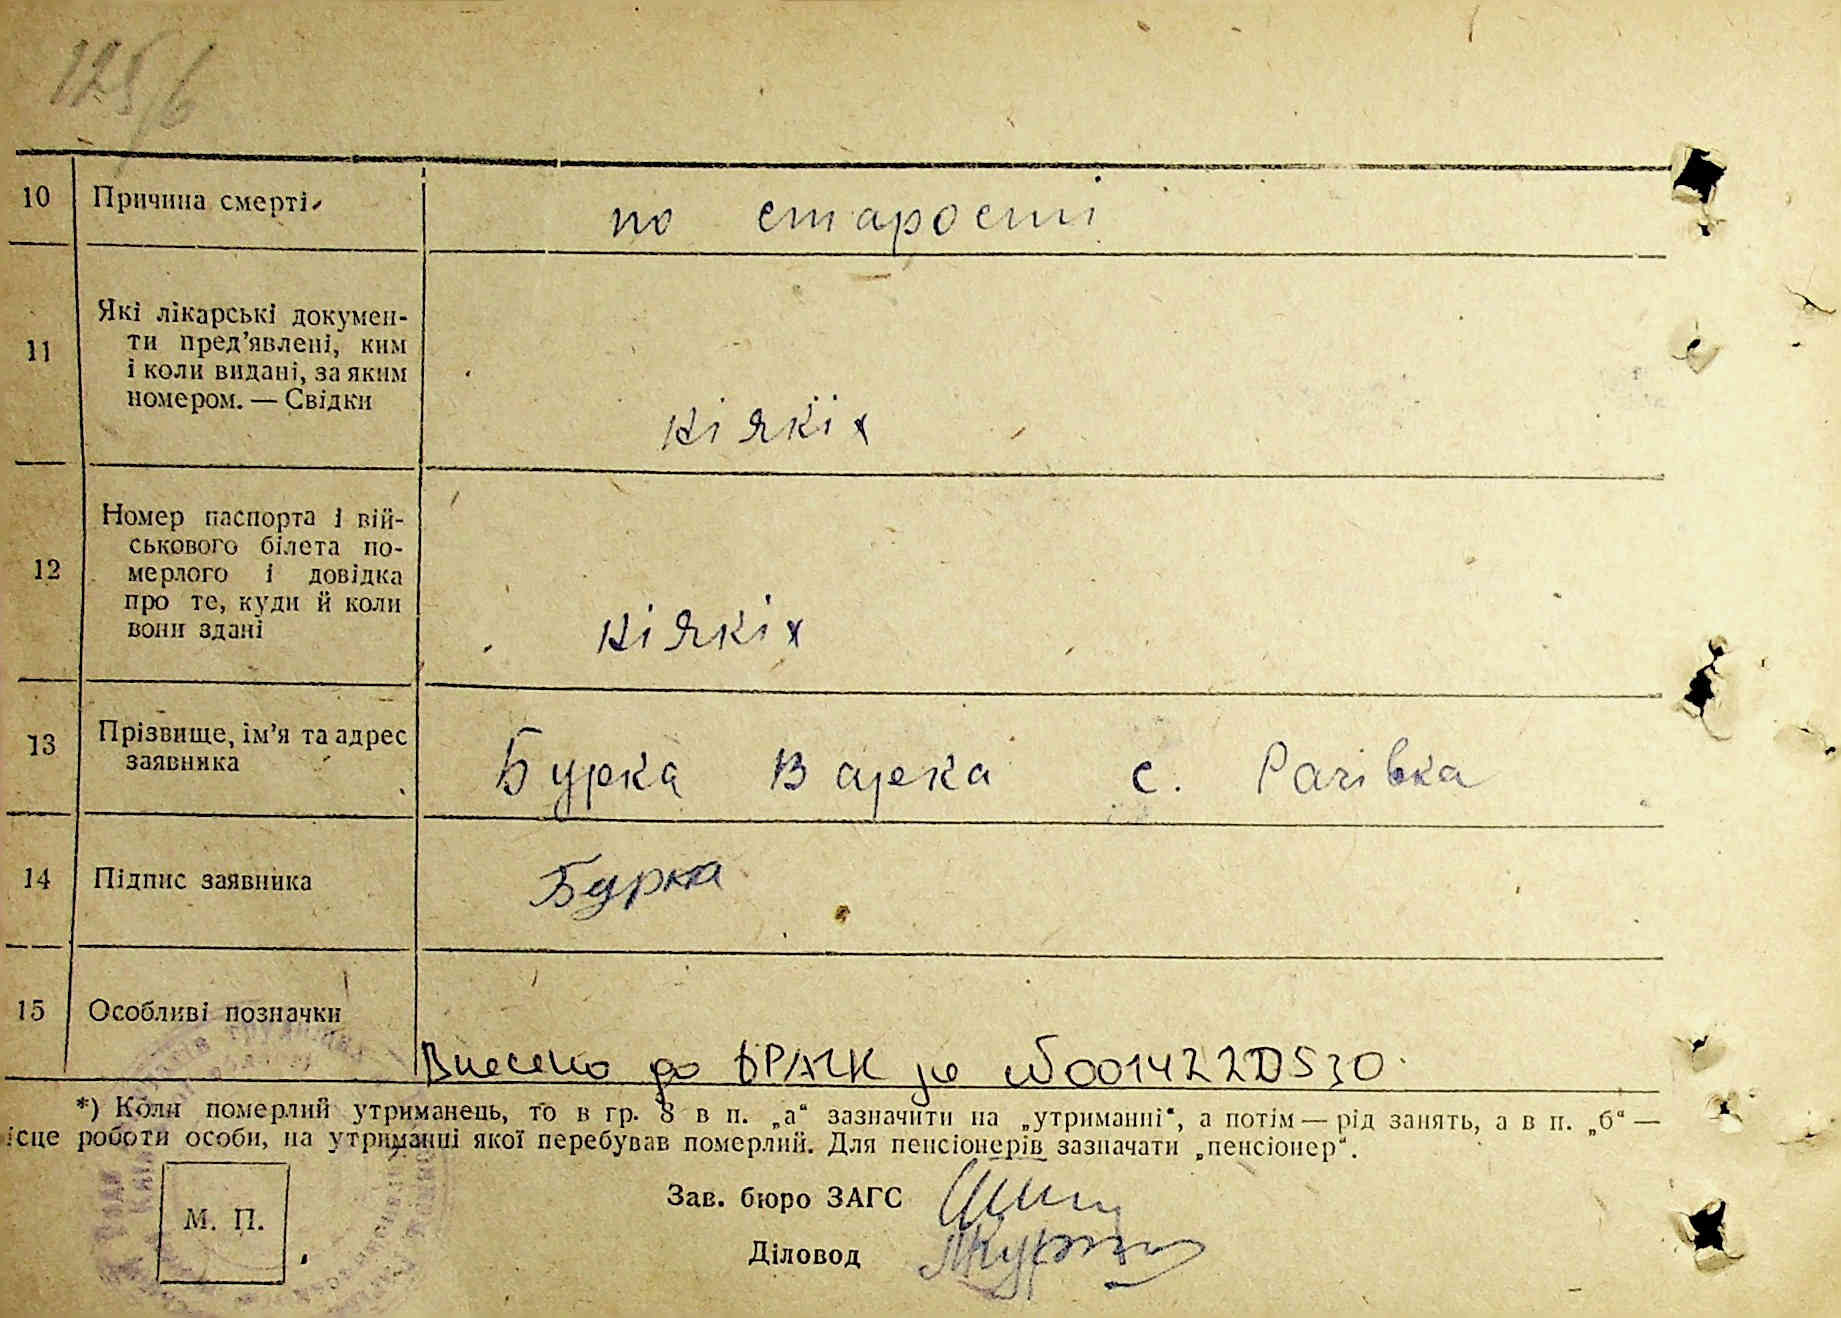 125/6
10 Причина смерті по старості
11 Які лікарські докумен-
ти пред’явлені, ким
і коли видані, за яким
номером. — Свідки ніякіх
12 Номер паспорта і вій-
ськового білета по-
мерлого і довідка
про те, куди й коли
вони здані ніякіх
13 Прізвище, ім’я та адрес
заявника Бурка Варка с. Рачівка
14 Підпис заявника Бурка
15 Особливі позначки
Внесено до ДРАЦС за №00142270530
*) Коли померлий утриманець, то в гр. 8 в п. „а“ зазначити на „утриманні“, а потім — рід занять, а в п. „б“ —
ісце роботи особи, на утриманні якої перебував померлий. Для пенсіонерів зазначати „пенсіонер“.
Зав. бюро ЗАГС
М. П.
Діловод